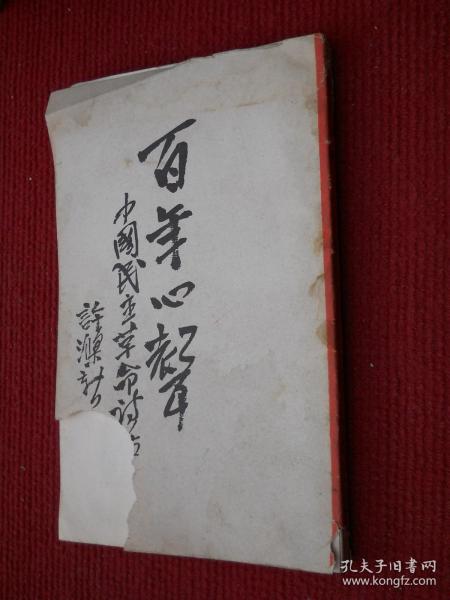 百年心聲
中國民主革命詩話
許凝
孔夫子旧书网
www.kongfz.com